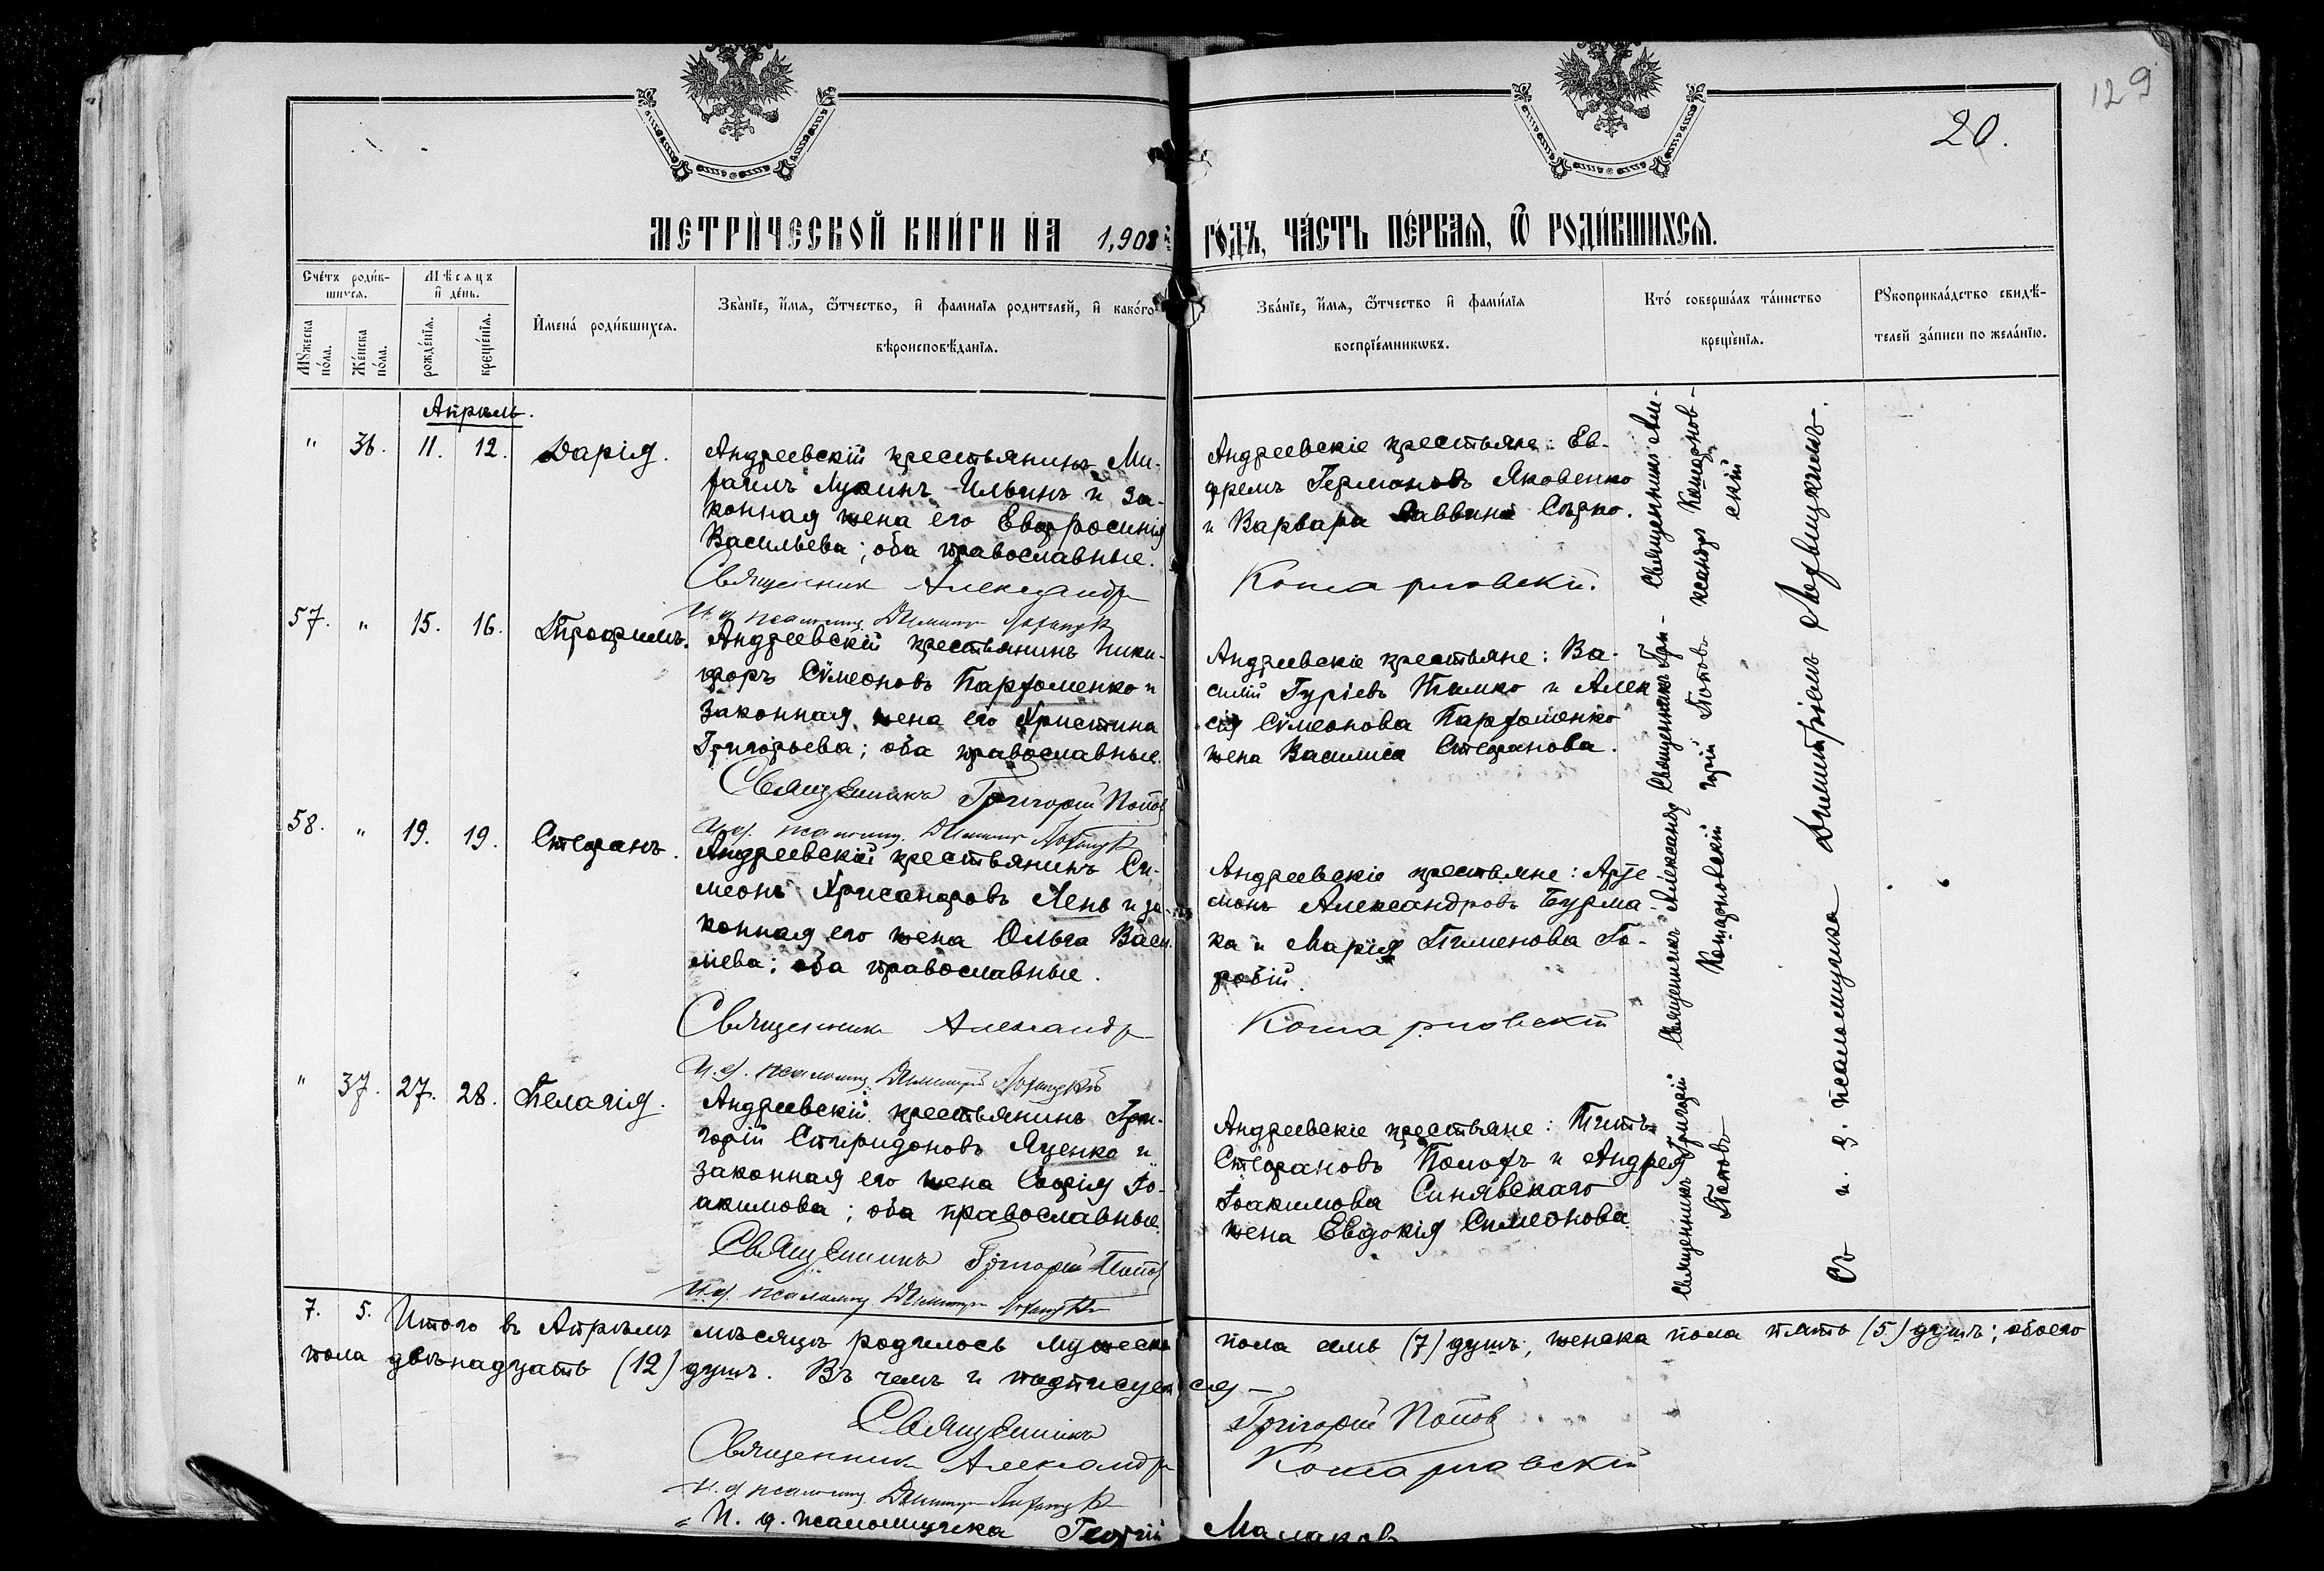 129
20.
МЕТРИ́ЧЕСКОЙ КНИ́ГИ НА 1,908й ГО́ДЪ, ЧА́СТЬ ПЕ́РВАЯ, Ѿ РОДИ́ВШИХСЯ.
Сче́тъ роди́в-
шихся.
Мѣсяцъ
и де́нь.
Мꙋжеска
по́ла.
Же́нска
по́ла.
рожде́нія.
креще́нія.
Имена́ роди́вшихся.
Зва́ніе, и́мя, ѻ҆́тчество, и фамилія родителей, и како́гѡ
вѣроисповѣ́данія.
Зва́ніе, и́мя, ѻ҆́тчество и фами́лія
воспріе́мникѡвъ.
Кто́ соверша́лъ та́инство
креще́нія.
Рꙋкоприкла́дство свидѣ́-
телей за́писи по жела́нію.
Апрѣль.
" 36. 11. 12. Дарія.
Андреевскій крестьянинъ Ми-
хаилъ Лукинъ Ильинъ и за-
конная жена его Евфросинія
Васильева; оба православные.
Священникъ Александръ
И. д. псаломщ. Димитрій
Андреевскіе крестьяне: Ев-
фремъ Германовъ Яковенко
и Варвара Саввина Сѣдко.
Комарновскій.
Священникъ Але-
ксандръ Комарнов-
скій
57. " 15. 16. Трофимъ.
Андреевскій крестьянинъ Ники-
форъ Сѵмеоновъ Пархоменко и
законная жена его Христина
Григорьева; оба православные.
Священникъ Григорій Попов
И. д. псаломщ. Димитрій
Андреевскіе крестьяне: Ва-
силій Гуріевъ Тимко и Алек
сія Сѵмеонова Пархоменко
жена Василиса Стефанова.
Священникъ Гри-
горій Поповъ
58. " 19. 19. Стефанъ.
Андреевскій крестьянинъ Си-
меонъ Хрисанфовъ Лень и за-
конная его жена Ольга Васи-
лиева; оба православные.
Священникъ Александръ
И. д. псаломщ. Димитрій
Андреевскіе крестьяне: Арте
монъ Александровъ Бурма-
ка и Марія Пименова Го-
робій.
Комарновскій
Священникъ Александр
Комарновскій
" 37. 27. 28. Пелагія.
Андреевскій крестьянинъ Гри-
горій Спиридоновъ Яценко и
законная его жена Софія Іо-
акимова; оба православные.
Священникъ Григорій Попов
И. д. псаломщ. Димитрій
Андреевскіе крестьяне: Титъ
Стефановъ Поло́хъ и Андрея
Іоакимова Синявскаго
жена Евдокія Симеонова
Священникъ Григорій
Поповъ
Съ и. д. псаломщика Димитріемъ
7. 5. Итого въ Апрѣлѣ мѣсяцѣ родилось мужеска пола семь (7) душъ, женска пола пять (5) душъ; обоего
пола двѣнадцать (12) душъ. Въ чемъ и подписуемся —
Священникъ Григорій Попов
Священникъ Александръ Комарновскій
И. д. псаломщ. Димитрій
И. д. псаломщика Георгій